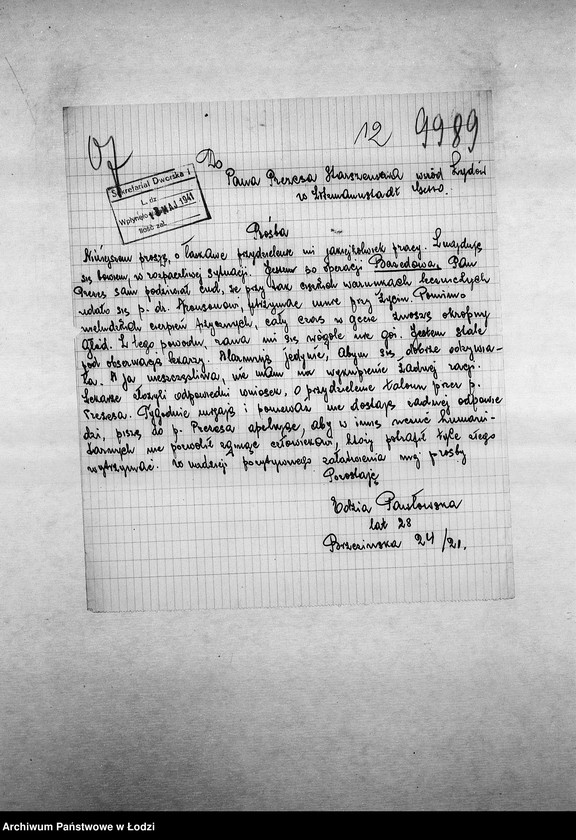 12 9989
Do
Pana Prezesa Starszeństwa wśród Żydów
w Litzmannstadt Getto.
Sekretariat Dworska 1
L. dz.
Wpłynęło MAJ 1941
Ilość zał.
Prośba
Niniejszem proszę, o łaskawe przydzielenie mi jakiejkolwiek pracy. Znajduję
się bowiem, w rozpaczliwej sytuacji. Jestem po operacji Basedowa. Pan
Prezes sam podziwiał cud, że przy tak ciężkich warunkach leczniczych
udało się p. dr. Aronsonowi, utrzymać mnie przy życiu. Pomimo
nieludzkich cierpień fizycznych, cały czas w getcie znoszę okropny
głód. Z tego powodu, rana mi się wogóle nie goi. Jestem stale
pod obserwacją lekarzy. Alarmują jedynie, abym się dobrze odżywia-
ła. A ja nieszczęśliwa, nie mam na wykupienie żadnej racji.
Lekarze złożyli odpowiedni wniosek, o przydzielenie talonu przez p.
Prezesa. Tygodnie mijają i ponieważ nie dostaję żadnej odpowie
dzi, piszę do p. Prezesa apelując, aby w imię humani-
tarnych nie pozwolił zginąć człowiekowi, który potrafił tyle złego
wytrzymać. W nadzieji pozytywnego załatwienia mej prośby
Pozostaję
Edzia Pawłowska
lat 28
Brzezińska 24/21.
Archiwum Państwowe w Łodzi